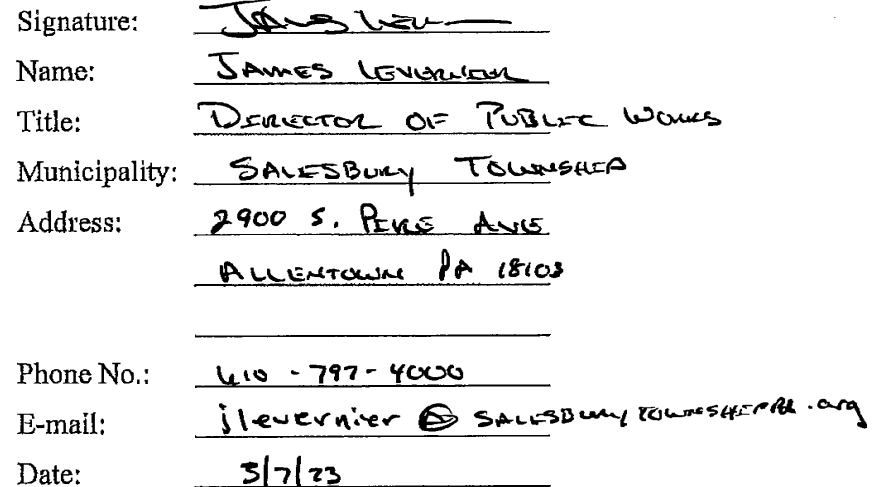 Signature:
Name: James Levernier
Title: Director of Public Works
Municipality: Salisbury Township
Address: 2900 S. Pike Ave
Allentown PA 18103
Phone No.: 610-797-4000
E-mail: jlevernier@salisburytownshippa.org
Date: 3/7/23